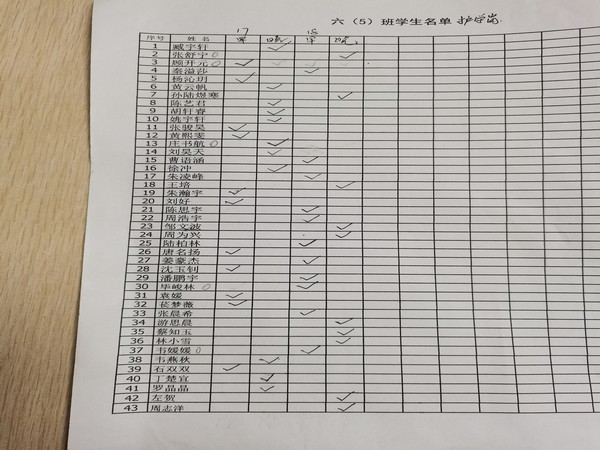 六（5）班学生名单 护学岗
17 18
序号 姓名 早 晚 早 晚
1 臧宇轩
2 张舒宁
3 顾开元
4 秦溢莎
5 杨沁玥
6 黄云帆
7 孙陆煜寒
8 陈艺君
9 胡轩睿
10 姚宇轩
11 张骏昊
12 黄熙雯
13 庄书航
14 刘昊天
15 曹语涵
16 徐冲
17 朱凌峰
18 王培
19 朱瀚宇
20 刘好
21 陈思宇
22 周浩宇
23 邹文波
24 周为兴
25 陆柏林
26 唐名扬
27 姜豪杰
28 沈玉钊
29 潘鹏宇
30 毕峻林
31 袁媛
32 苌梦薇
33 张晨希
34 游思晨
35 蔡知玉
36 林小雪
37 韦媛媛
38 韦燕秋
39 石双双
40 丁楚宜
41 罗晶晶
42 左贺
43 周志洋